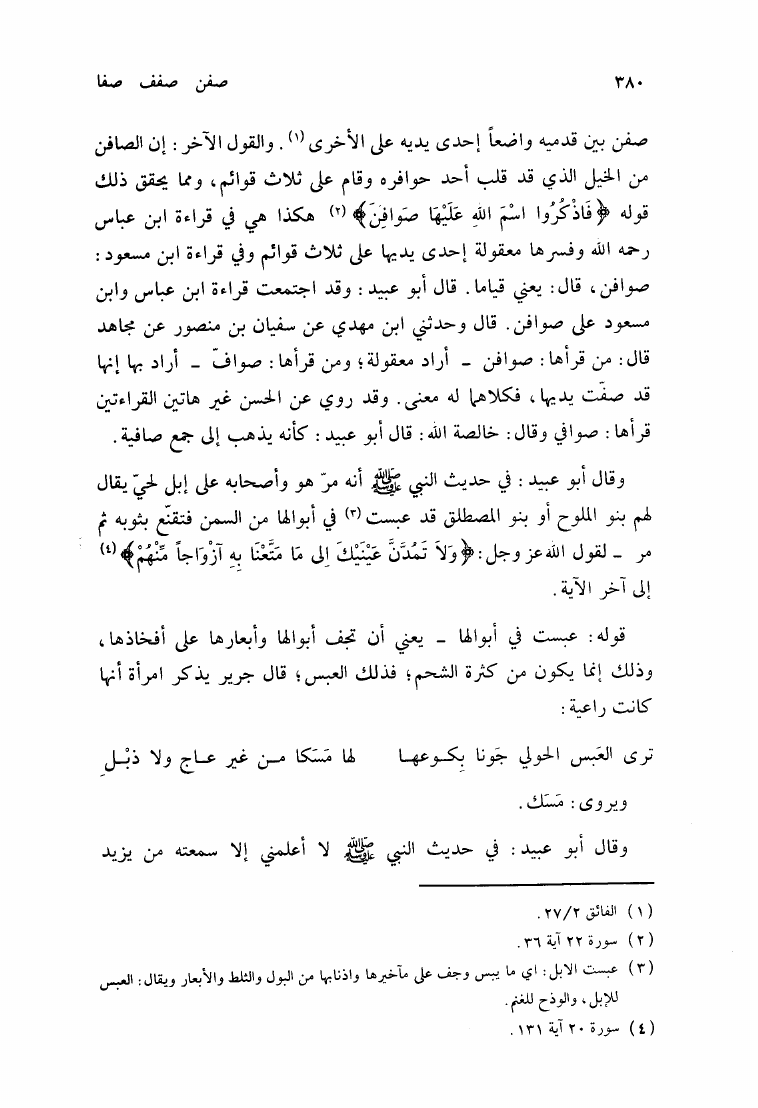 ٣٨٠ صفن صفف صفا
صفن بين قدميه واضعاً إحدى يديه على الأخرى(١). والقول الآخر: إن الصافن
من الخيل الذي قد قلب أحد حوافره وقام على ثلاث قوائم، ومما يحقق ذلك
قوله ﴿فَاذْكُرُوا اسْمَ اللهِ عَلَيْهَا صَوَافِنَ﴾(٢) هكذا هي في قراءة ابن عباس
رحمه الله وفسرها معقولة إحدى يديها على ثلاث قوائم وفي قراءة ابن مسعود:
صوافن، قال: يعني قياما. قال أبو عبيد: وقد اجتمعت قراءة ابن عباس وابن
مسعود على صوافن. قال وحدثني ابن مهدي عن سفيان بن منصور عن مجاهد
قال: من قرأها: صوافن - أراد معقولة؛ ومن قرأها: صوافّ - أراد بها إنها
قد صفّت يديها، فكلاهما له معنى. وقد روي عن الحسن غير هاتين القراءتين
قرأها: صوافي وقال: خالصة الله: قال أبو عبيد: كأنه يذهب إلى جمع صافية.
وقال أبو عبيد: في حديث النبي ﷺ أنه مرّ هو وأصحابه على إبل لحيّ يقال
لهم بنو الملوح أو بنو المصطلق قد عبست(٣) في أبوالها من السمن فتقنّع بثوبه ثم
مر - لقول الله عز وجل: ﴿وَلاَ تَمُدَّنَّ عَيْنَيْكَ إِلى مَا مَتَّعْنَا بِهِ آزْوَاجاً مِّنْهُمْ﴾(٤)
إلى آخر الآية.
قوله: عبست في أبوالها - يعني أن تجف أبوالها وأبعارها على أفخاذها،
وذلك إنما يكون من كثرة الشحم؛ فذلك العبس؛ قال جرير يذكر امرأة أنها
كانت راعية:
ترى العَبس الحولي جَونا بِكـوعهـا لها مَسَكا مـن غير عـاج ولا ذبْـلِ
ويروى: مَسَك.
وقال أبو عبيد: في حديث النبي ﷺ لا أعلمني إلا سمعته من يزيد
(١) الفائق ٢٧/٢.
(٢) سورة ٢٢ آية ٣٦.
(٣) عبست الابل: اي ما يبس وجف على مآخيرها واذنابها من البول والثلط والأبعار ويقال: العبس
للإبل، والوذح للغنم.
(٤) سورة ٢٠ آية ١٣١.